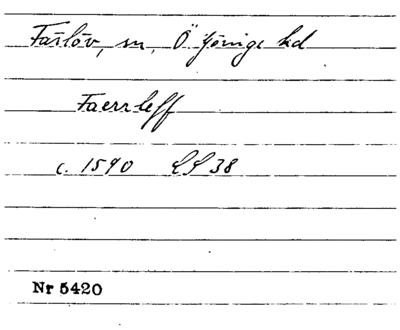 Färlöv, sn, Ö Göinge hd
Faerrleff
c. 1590 LL 38
Nr 5420